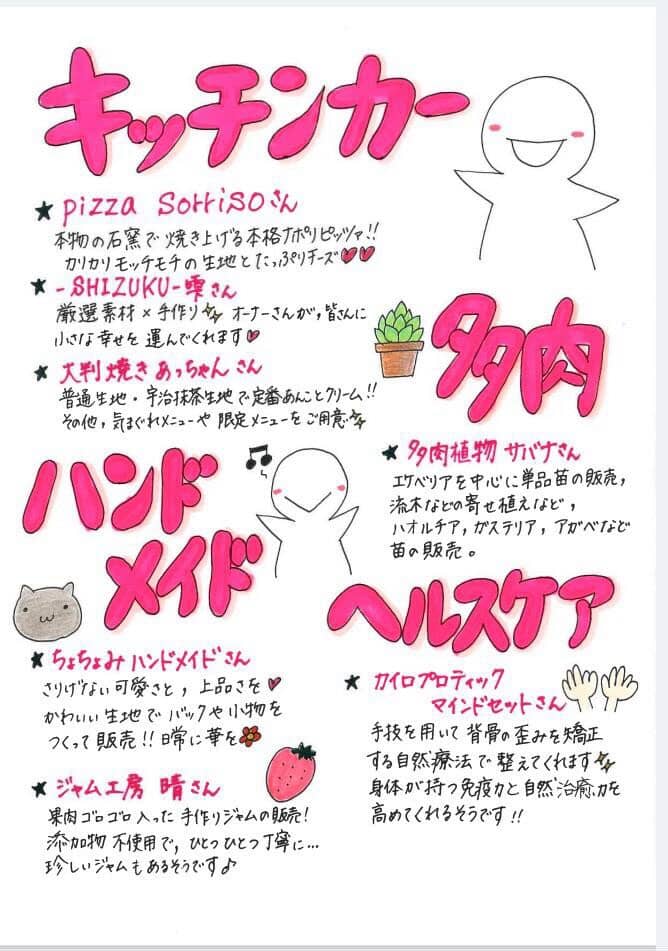 キッチンカー
★ pizza sorrisoさん
本物の石窯で焼き上げる本格ナポリピッツァ!!
カリカリモッチモチの生地とたっぷりチーズ♥♥
★ -SHIZUKU-雫さん
厳選素材×手作り✨オーナーさんが、皆さんに
小さな幸せを運んでくれます♥
★ 大判焼き あっちゃんさん
普通生地・宇治抹茶生地で定番あんことクリーム!!
その他、気まぐれメニューや限定メニューをご用意✨
多肉
★ 多肉植物 サバナさん
エケベリアを中心に単品苗の販売、
流木などの寄せ植えなど、
ハオルチア、ガステリア、アガベなど
苗の販売。
ハンド
メイド
★ ちょちょみハンドメイドさん
さりげない可愛さと、上品さを♥
かわいい生地でバックや小物を
つくって販売!!日常に華を
★ ジャム工房 晴さん
果肉ゴロゴロ入った手作りジャムの販売!
添加物不使用で、ひとつひとつ丁寧に...
珍しいジャムもあるそうです♪
ヘルスケア
★ カイロプロティック
マインドセットさん
手技を用いて背骨の歪みを矯正
する自然療法で整えてくれます✨
身体が持つ免疫力と自然治癒力を
高めてくれるそうです!!